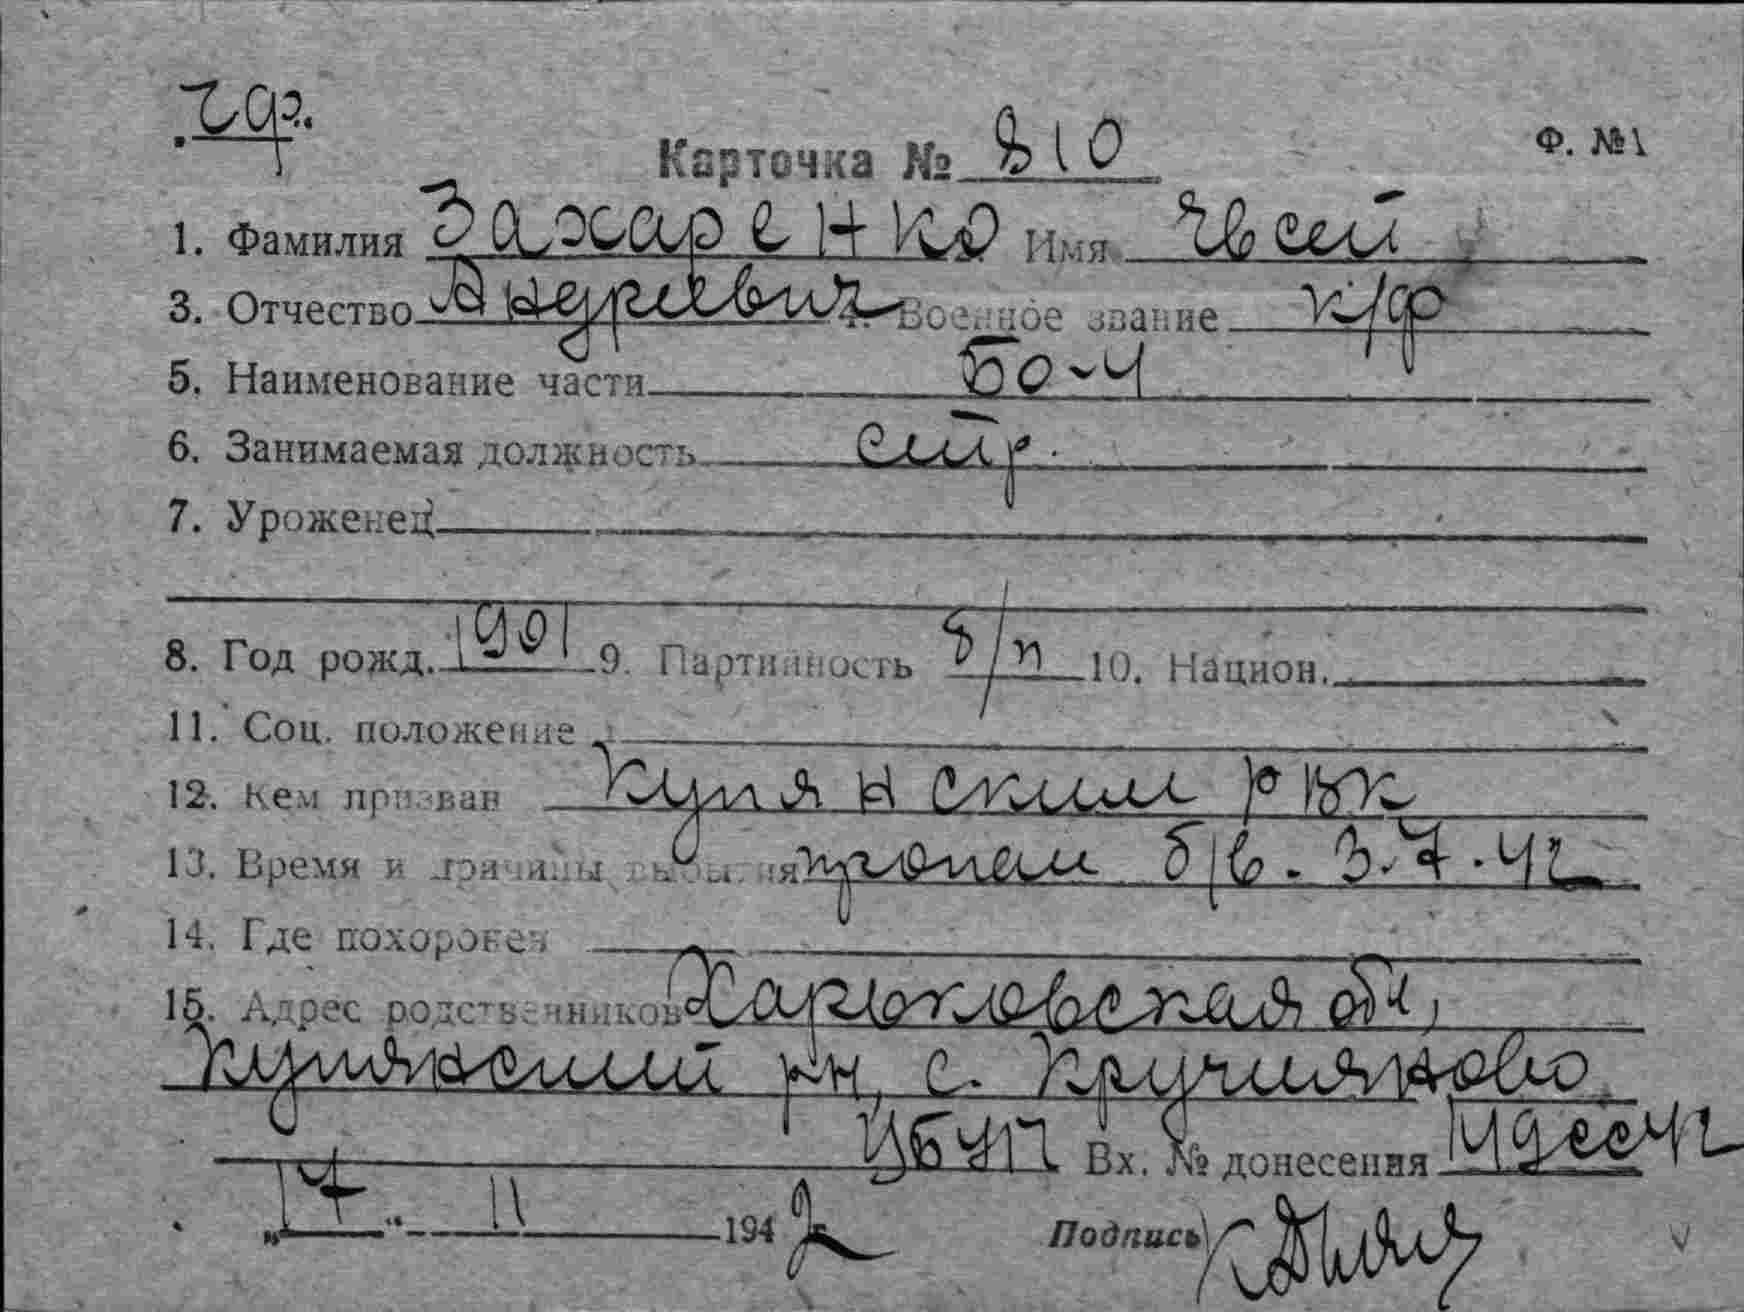 Карточка № 810 Ф. №1
1. Фамилия Захаренко Имя Евсей
3. Отчество Андреевич 4. Военное звание к/ф
5. Наименование части 60-Ч
6. Занимаемая должность стр.
7. Уроженец
8. Год рожд. 1901 9. Партийность б/п 10. Национ.
11. Соц. положение
12. Кем призван Купянским РВК
13. Время и причины выбытия пропал б/в. 3.7.42
14. Где похоронен
15. Адрес родственников Харьковская обл,
Купянский рн, с. Кругляково
Вх. № донесения
„17“ 11 1942 Подпись